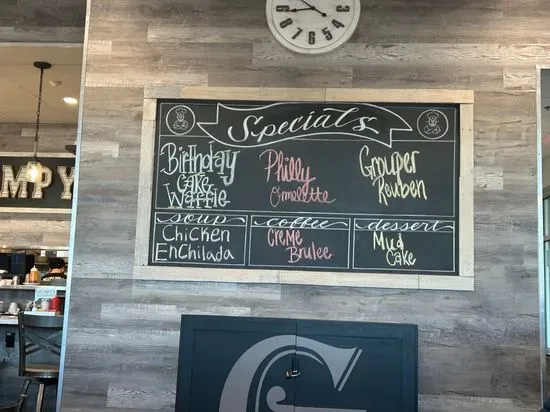 8 7 6 5 4
Specials
Birthday
Cake
Waffle
Philly
Omelette
Grouper
Reuben
soup
Chicken
Enchilada
coffee
Creme
Brulee
dessert
Mud
Cake
MPY
G